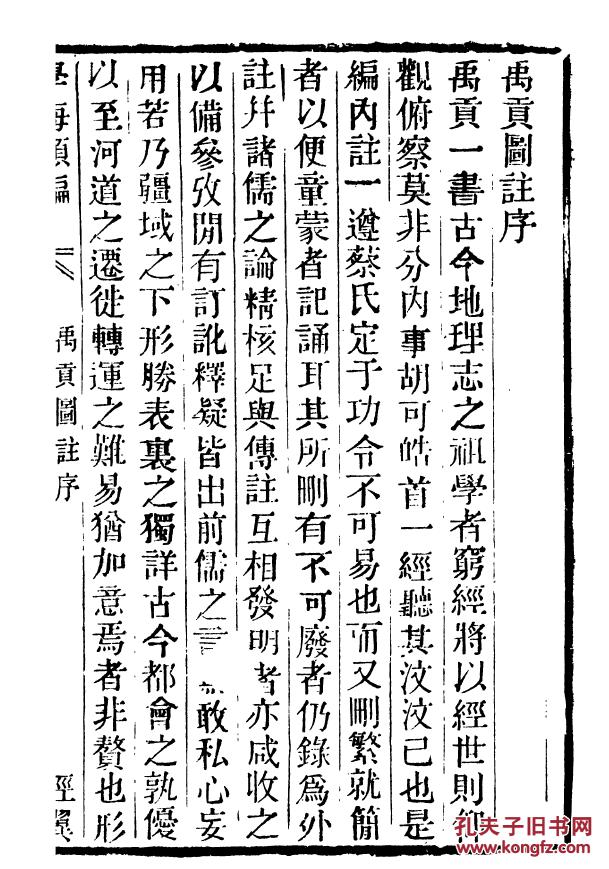 禹貢圖註序
禹貢一書古今地理志之祖學者窮經將以經世則仰
觀俯察莫非分內事胡可皓首一經聽其汶汶已也是
編內註一遵蔡氏定于功令不可易也而又刪繁就簡
者以便童蒙者記誦耳其所刪有不可廢者仍錄爲外
註幷諸儒之論精核足與傳註互相發明者亦咸收之
以備參攷閒有訂訛釋疑皆出前儒之言 敢私心妄
用若乃疆域之下形勝表裏之獨詳古今都會之孰優
以至河道之遷徙轉運之難易猶加意焉者非贅也形
學海類編 禹貢圖註序 一 經翼
孔夫子旧书网
www.kongfz.com